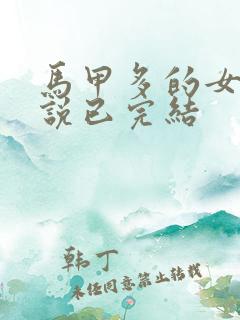 馬甲多的女
說已完結
韩丁
未经同意禁止转载